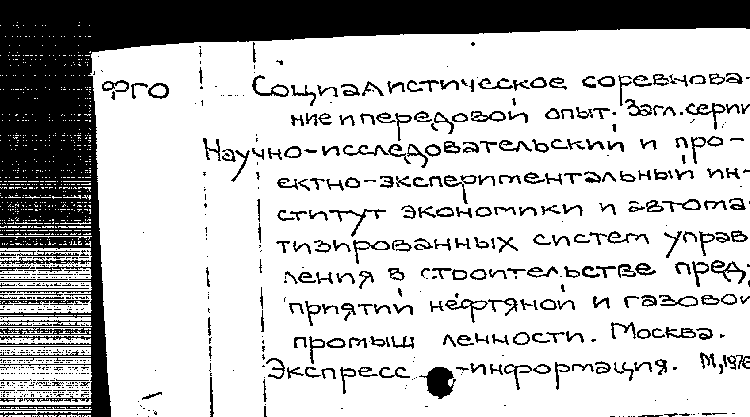 ФГО Социалистическое соревнова-
ние и передовой опыт. Загл. серии
Научно-исследовательский и про-
ектно-экспериментальный ин-
ститут экономики и автома-
тизированных систем управ
ления в строительстве пред-
приятий нефтяной и газовой
промыш ленности. Москва.
Экспресс -информация. М, 1976